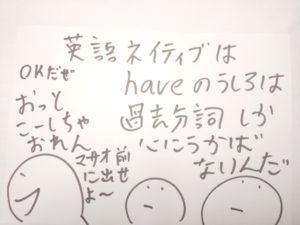 英語ネイティブは
haveのうしろは
過去分詞しか
心にうかば
ないんだ
OKだぜ
おっと
こーしちゃ
おれん
マサオ前
に出せ
よ〜